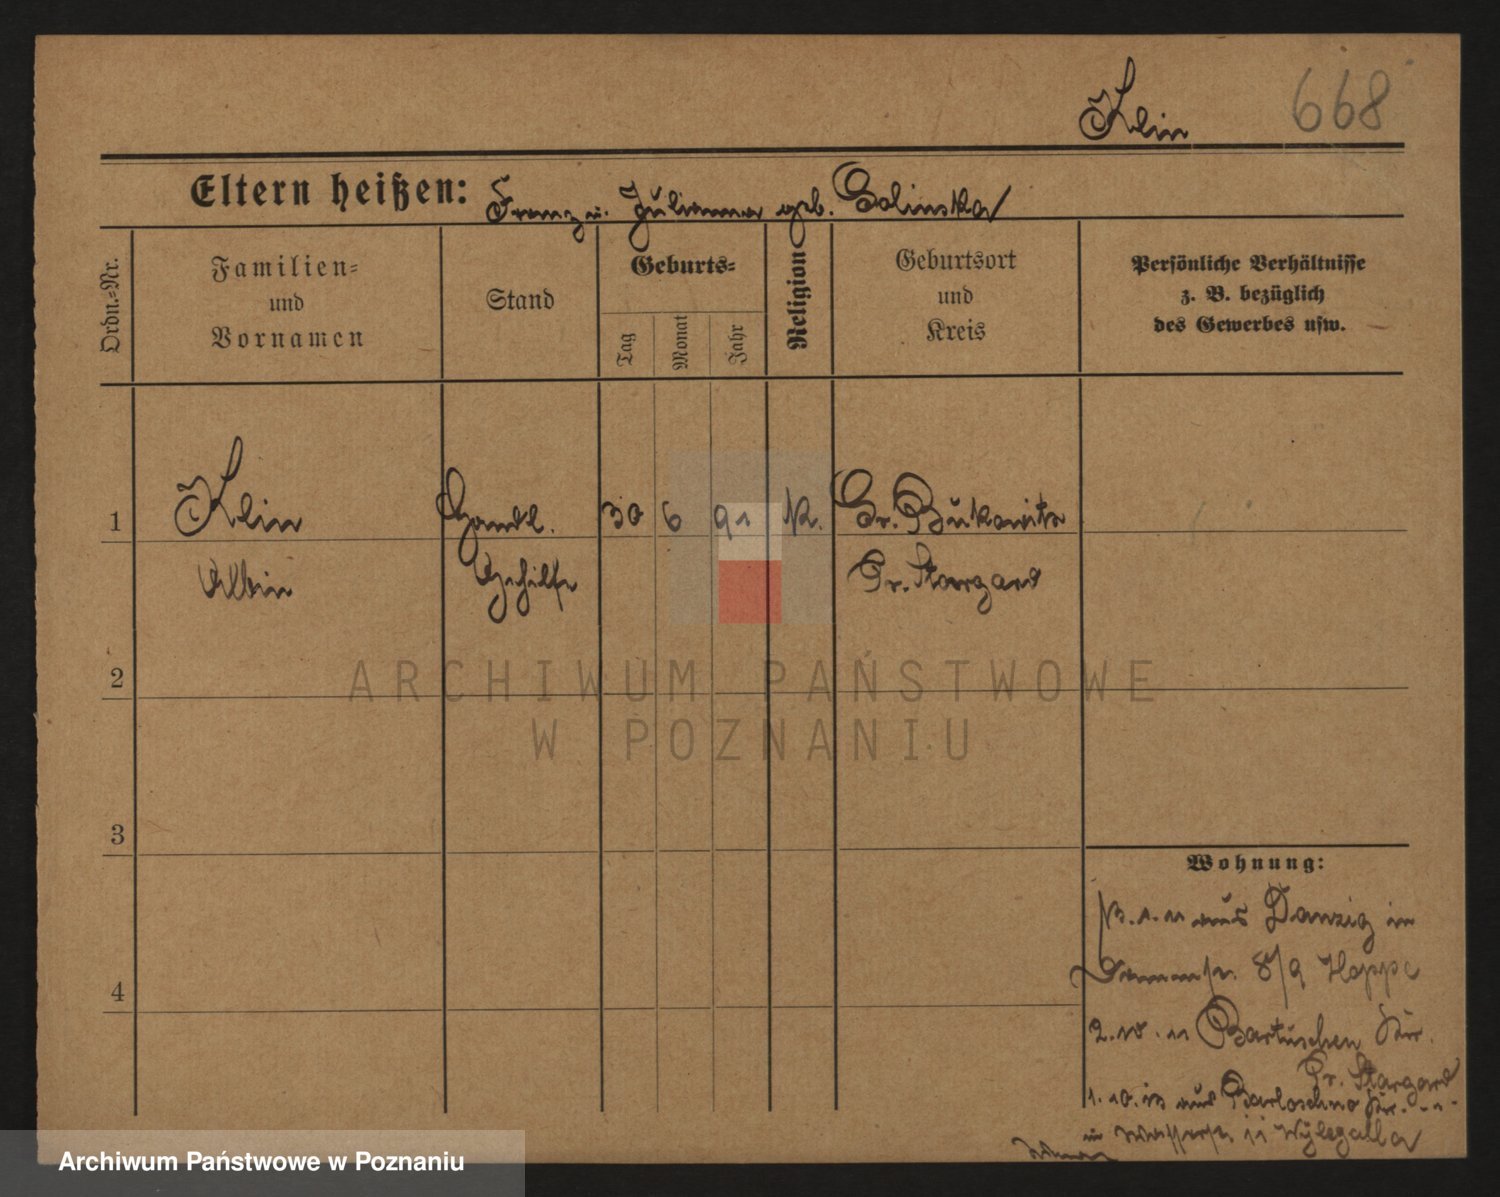 Klein 668
Eltern heißen: Franz u. Julianna geb. Golinska
Ordn.-Nr.
Familien-
und
Vornamen
Stand
Geburts-
Tag
Monat
Jahr
Religion
Geburtsort
und
Kreis
Persönliche Verhältnisse
z. B. bezüglich
des Gewerbes usw.
1 Klein Handl. 30 6 91 K. Gr. Bukowitz
Albin Gehilfe Pr. Stargard
2
3
4
Wohnung:
3.1.11 aus Danzig in
Dammstr. 8/9 Hoppe
2.10.11 Bartuschen Kr.
Pr. Stargard
1.10.13 aus Barloschno Kr. - - -
in Wasserstr. 11 Wylegalla
ARCHIWUM PAŃSTWOWE
W POZNANIU
Archiwum Państwowe w Poznaniu